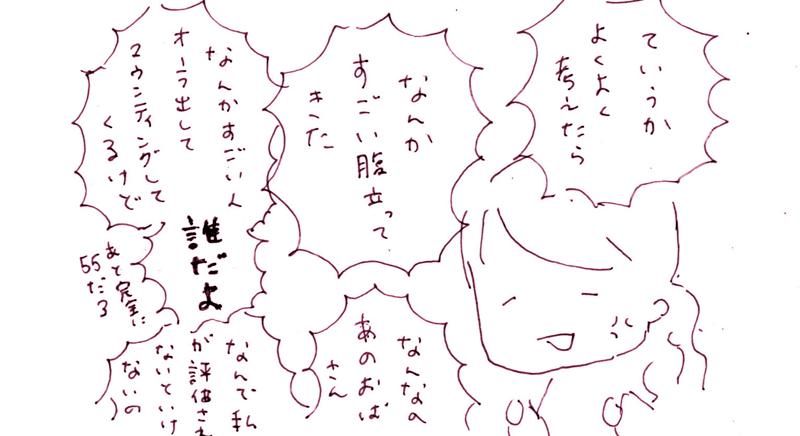 ていうか
よくよく
考えたら
なんか
すごい腹立って
きた
なんかすごい人
オーラ出して
マウンティングして
くるけど
誰だよ
あと完全に
55だろ
なんなの
あのおば
さん
なんで私
が評価され
ないといけ
ないの